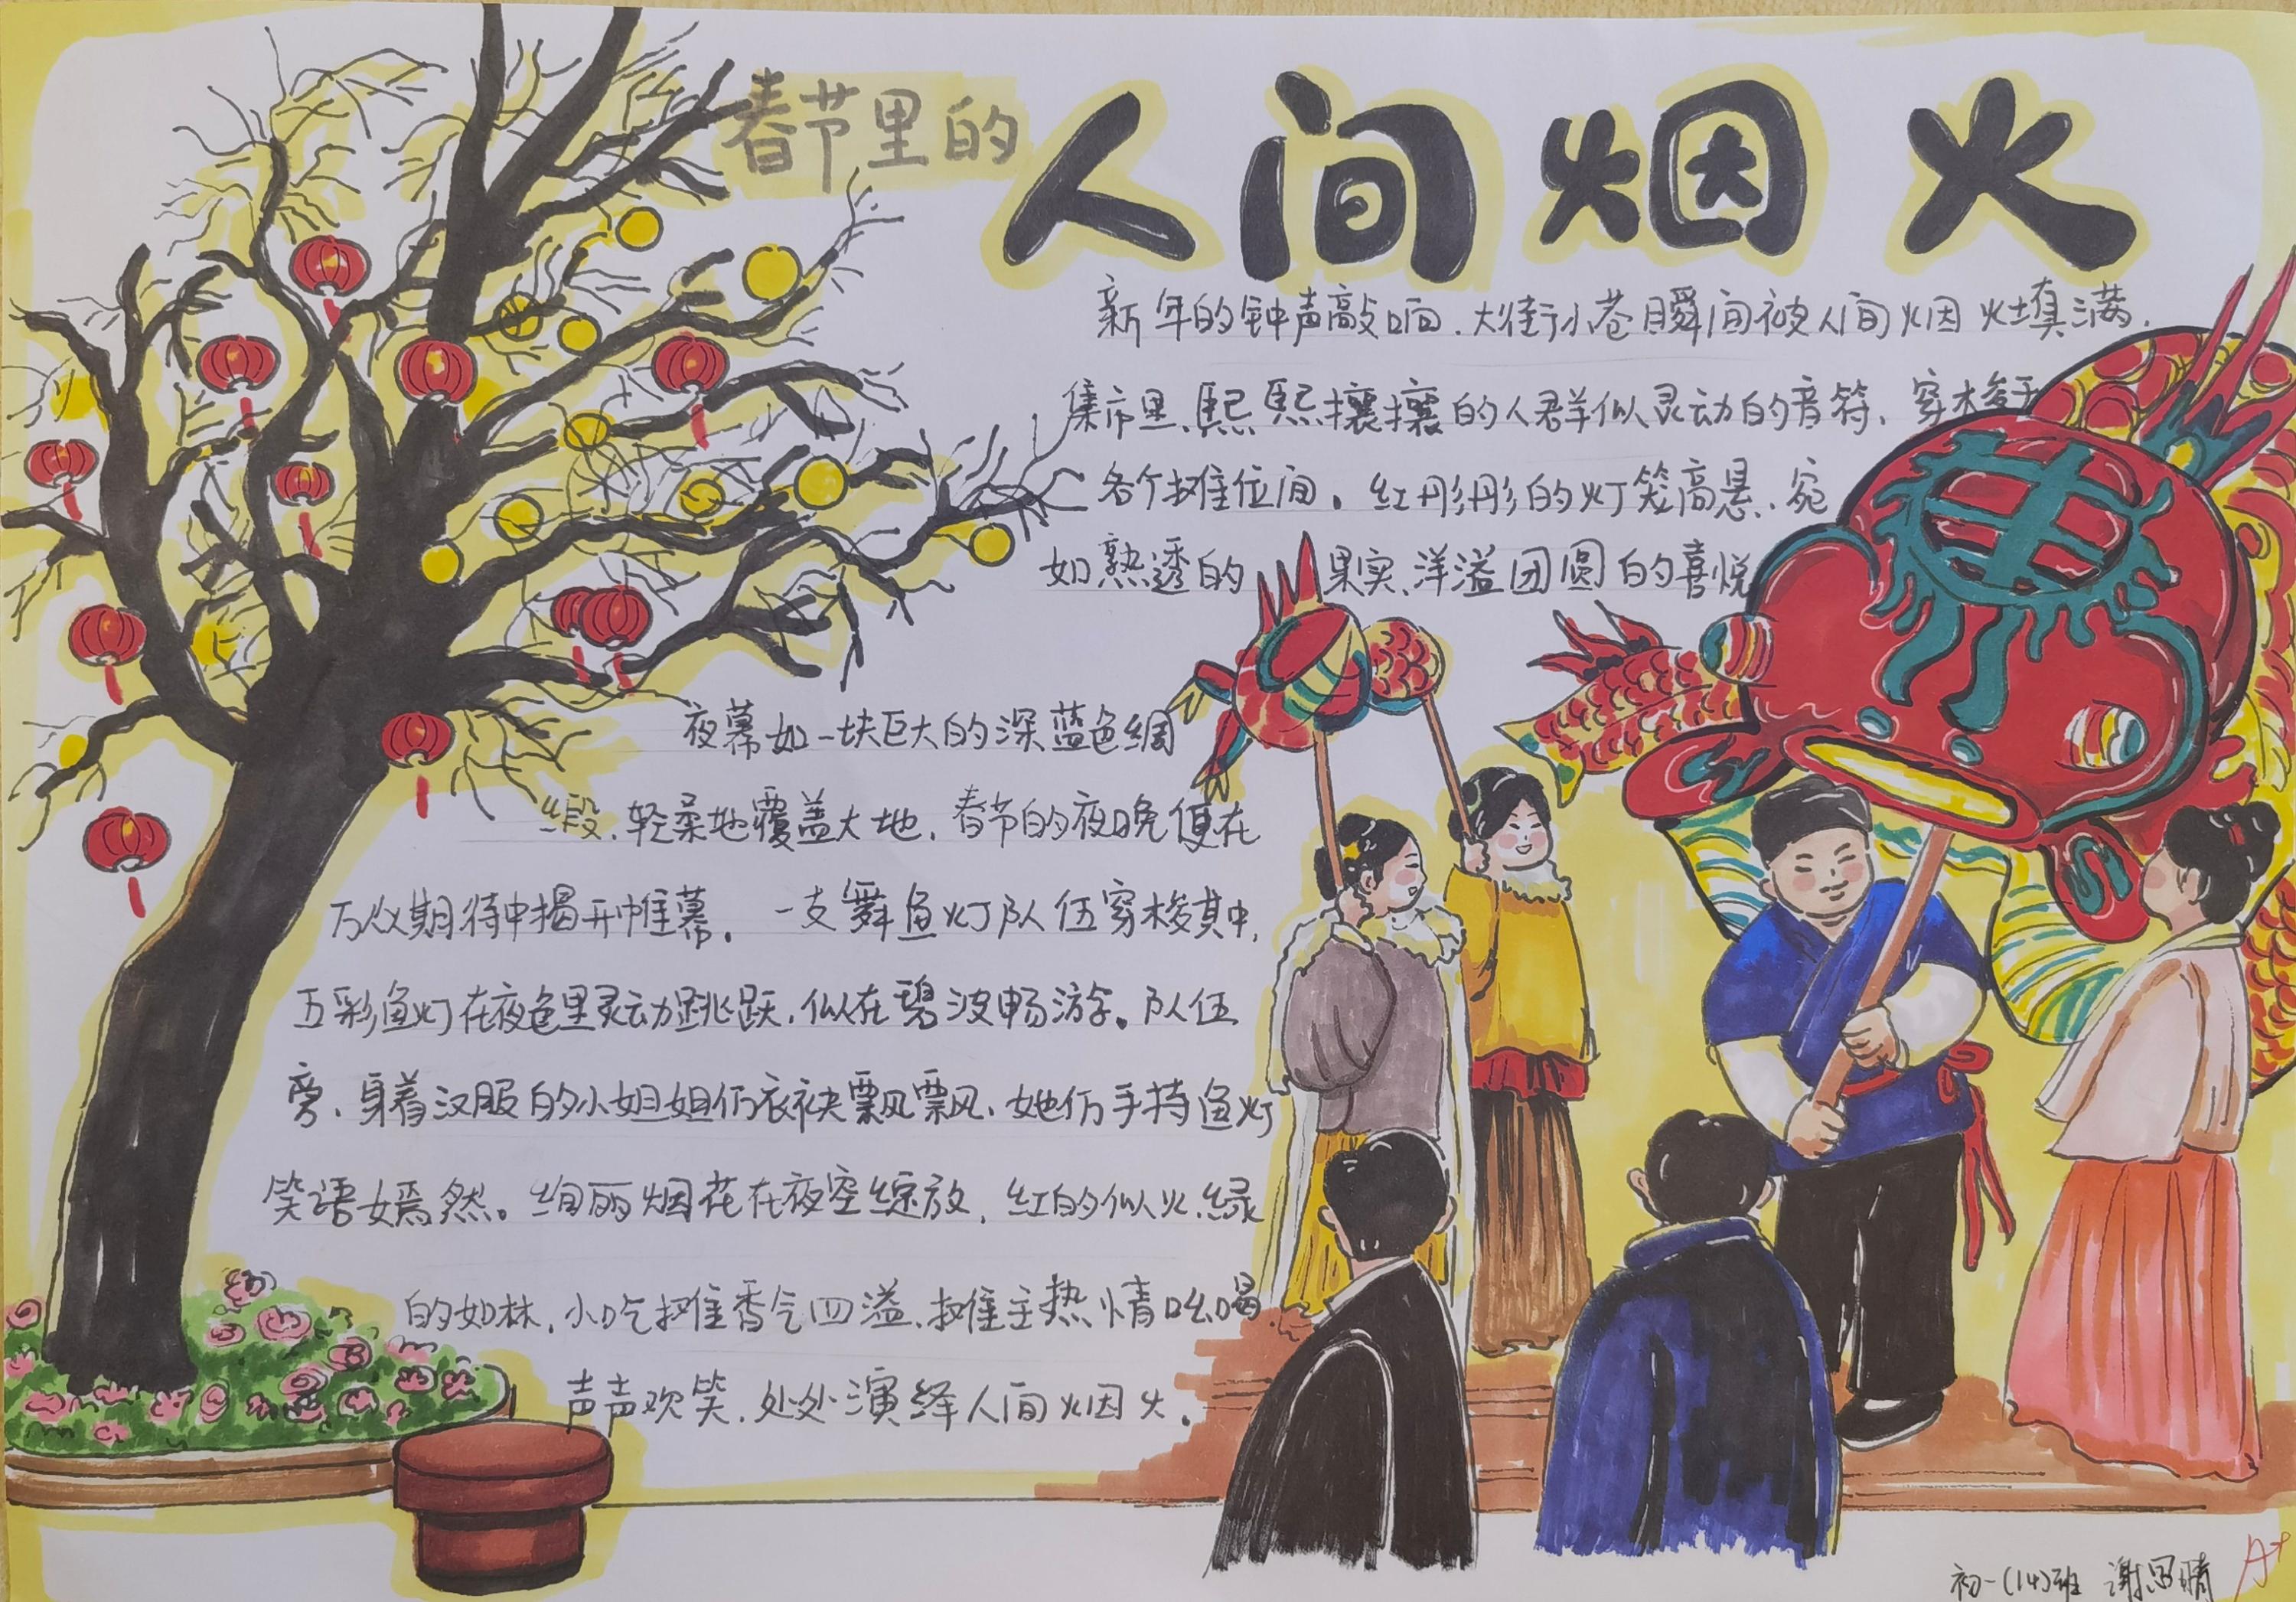 春节里的
人间烟火
新年的钟声敲响，大街小巷瞬间被人间烟火填满，
集市里、熙熙攘攘的人群似灵动的音符，穿梭于
各个摊位间。红彤彤的灯笼高悬，宛
如熟透的果实、洋溢团圆的喜悦
夜幕如一块巨大的深蓝色绸
段，轻柔地覆盖大地，春节的夜晚便在
万众期待中揭开帷幕。一支舞鱼灯队伍穿梭其中，
五彩鱼灯在夜色里灵动跳跃，似在碧波畅游。队伍
旁、身着汉服的小姐姐们衣袂飘飘，她们手持鱼灯
笑语嫣然。绚丽烟花在夜空绽放，红的似火、绿
的如林，小吃摊香气四溢、摊主热情吆喝
声声欢笑，处处演绎人间烟火。
初一(14)班 谢思晴
A+